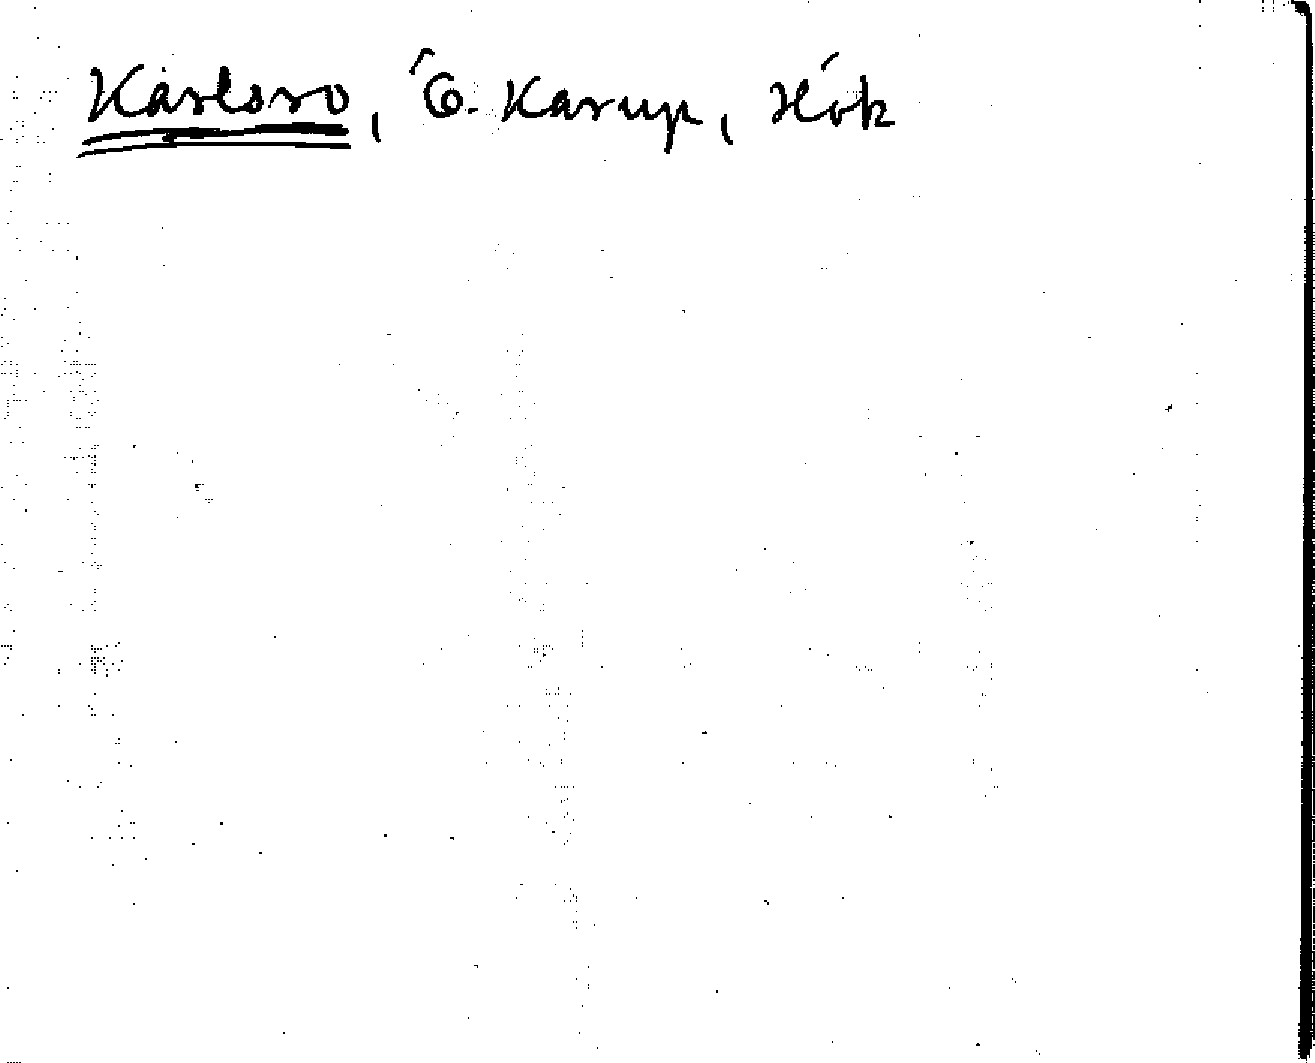 Karlsro, Ö. Karup, Hök